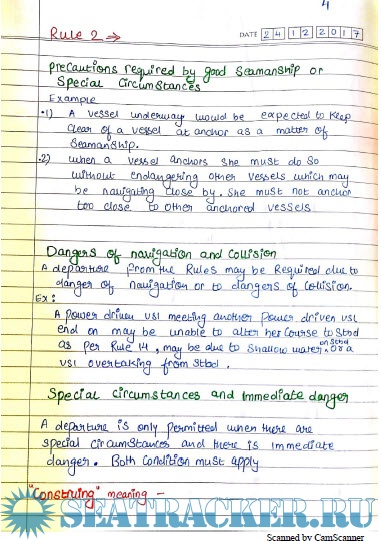 4
Rule 2 →
DATE 2 4 1 2 2 0 1 7
precautions required by good Seamanship or
Special Circumstances
Example
•1) A vessel underway would be expected to keep
clear of a vessel at anchor as a matter of
Seamanship.
•2) when a vessel anchors she must do so
without endangering other vessels which may
be navigating close by. She must not anchor
too close to other anchored vessels
Dangers of navigation and collision
A departure from the Rules may be Required due to
danger of navigation or to dangers of collision.
Ex:
A power driven vsl meeting another power driven vsl
end on may be unable to alter her course to Stbd
as per Rule 14, may be due to shallow water on stbd. Or a
vsl overtaking from stbd.
Special circumstances and immediate danger
A departure is only permitted when there are
special circumstances and there is immediate
danger. Both condition must apply
"Construing" meaning -
SEATRACKER.RU
Scanned by CamScanner